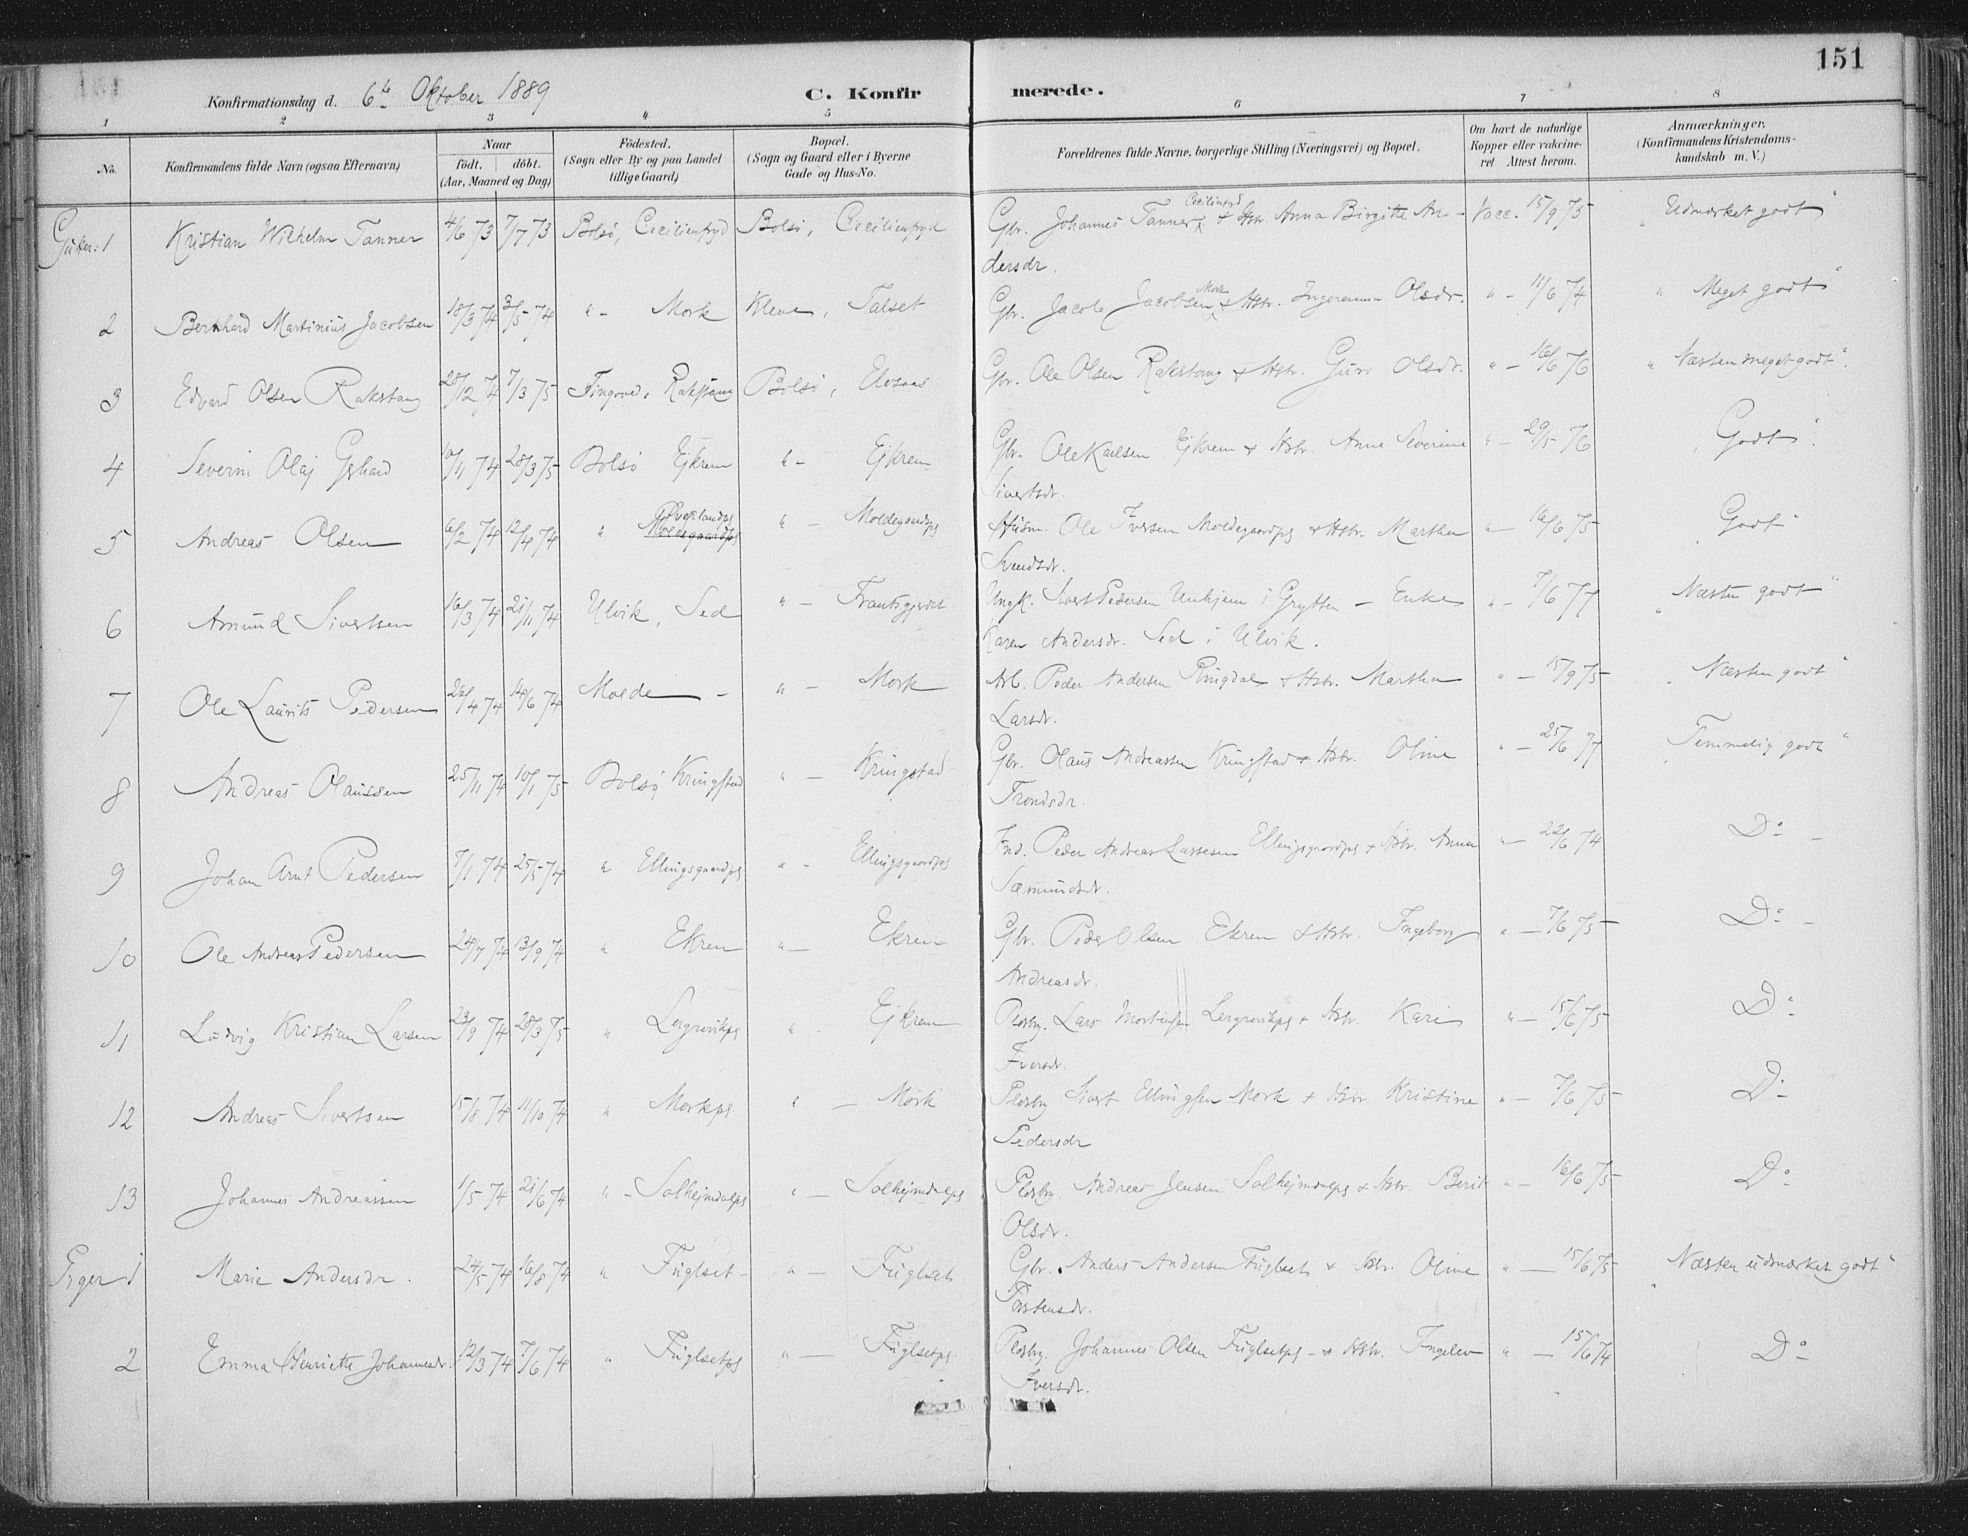 151
Konfirmationsdag d. 6te Oktober 1889 C. Konfirmerede.
1 2 3 4 5 6 7 8
No. Konfirmandens fulde Navn (ogsaa Efternavn) Naar födt. döbt. (Aar, Maaned og Dag) Födested. (Sogn eller By og paa Landet tillige Gaard) Bopæl. (Sogn og Gaard eller i Byerne Gade og Hus-No. Forældrenes fulde Navne, borgerlige Stilling (Næringsvei) og Bopæl. Om havt de naturlige Kopper eller vakcineret. Attest herom. Anmærkninger. (Konfirmandens Kristendomskundskab m. V.)
Gutter: 1 Kristian Wilhelm Tanner 4/6 73 7/7 73 Bolsö, Cecilienfryd Bolsö, Cecilienfryd Gbr. Johannes Tanner Cecilienfryd & Hstr. Anna Birgitte An- Vacc. 15/9 75 "Udmærket godt"
dersdr.
2 Bernhard Martinius Jacobsen 18/3 74 3/5 74 " - Mork Kleve, Talset Gbr. Jacob Jacobsen Mork & Hstr. Ingeranna Olsdr. " - 11/6 74 "Meget godt"
3 Edvard Olsen Rakstang 28/12 74 7/3 75 Tingvod, Rakstang Bolsö, Gbr. Ole Olsen Rakstang & Hstr. Guri Olsdr. " - 16/6 76 "Næsten meget godt".
4 Severin Olaj 10/11 74 28/3 75 Bolsö Ejkrem " - Ejkrem Gbr. Ole Karlsen Ejkrem & Hstr. Anne Severine " - 29/5 76 "Godt".
Sivertsdr.
5 Andreas Olsen 6/2 74 12/4 74 " Moldegaardpl " - Moldegaardpl Husm. Ole Iversen Moldegaardpl & Hstr. Marthe " - 16/6 75 "Godt"
Svendsdr.
6 Amund Sivertsen 16/3 74 21/11 74 Ulvik, Sed " - Frantsgjerdet Ungk. Sivert Pedersen Unhjem i Grytten - Enke " - 7/6 77 "Næsten godt"
Karen Andersdr. Sed i Ulvik.
7 Ole Laurits Pedersen 26/4 74 14/6 74 Molde - " - Mork Arb. Peder Andersen Ringdal & Hstr. Martha " - 15/9 75 "Næsten godt"
Larsdr.
8 Andreas Olaussen 25/11 74 10/1 75 Bolsö Kringstad " - Kringstad Gbr. Olaus Andreassen Kringstad & Hstr. Oline " - 25/6 77 "Temmelig godt"
Trondsdr.
9 Johan Arnt Pedersen 7/1 74 25/5 74 " Ellingsgaardpl " - Ellingsgaardpl Ind. Peder Andreas Lassesen Ellingsgaardpl & Hstr. Anna " - 22/6 74 Do -
Sæmundsdr.
10 Ole Andreas Pedersen 24/7 74 13/9 74 " Ekrem " - Ekrem Gbr. Peder Olsen Ekrem & Hstr. Ingeborg " - 7/6 75 Do -
Andreasdr.
11 Ludvig Kristian Larsen 23/9 74 28/3 75 " Lergrovikpl " Ejkrem Plsbg. Lars Mortensen Lergrovikpl & Hstr. Kari " - 15/6 75 Do
Iversdr.
12 Andreas Sivertsen 15/8 74 11/10 74 " Morkpl " - Mork Plsbg Sivert Ellingsen Mork & Hstr. Kristine " - 7/6 75 Do
Pedersdr
13 Johannes Andreassen 1/5 74 21/6 74 " - Solhejmdalpl " - Solhejmdalpl Plsbg. Andreas Jensen Solhejmdalpl & Hstr. Berit " - 16/6 75 Do
Olsdr.
Piger 1 Marie Andersdr. 24/5 74 16/8 74 " Fuglset - " - Fuglset Gbr. Anders Andersen Fuglset & Hstr. Oline " - 15/6 75 "Næsten udmærket godt"
Torstensdr.
2 Emma Henriette Johannesdr. 12/3 74 7/6 74 " Fuglsetpl " - Fuglsetpl. Plsbg. Johannes Olsen Fuglsetpl - & Hstr. Ingelev " - 15/6 74 Do
Iversdr.